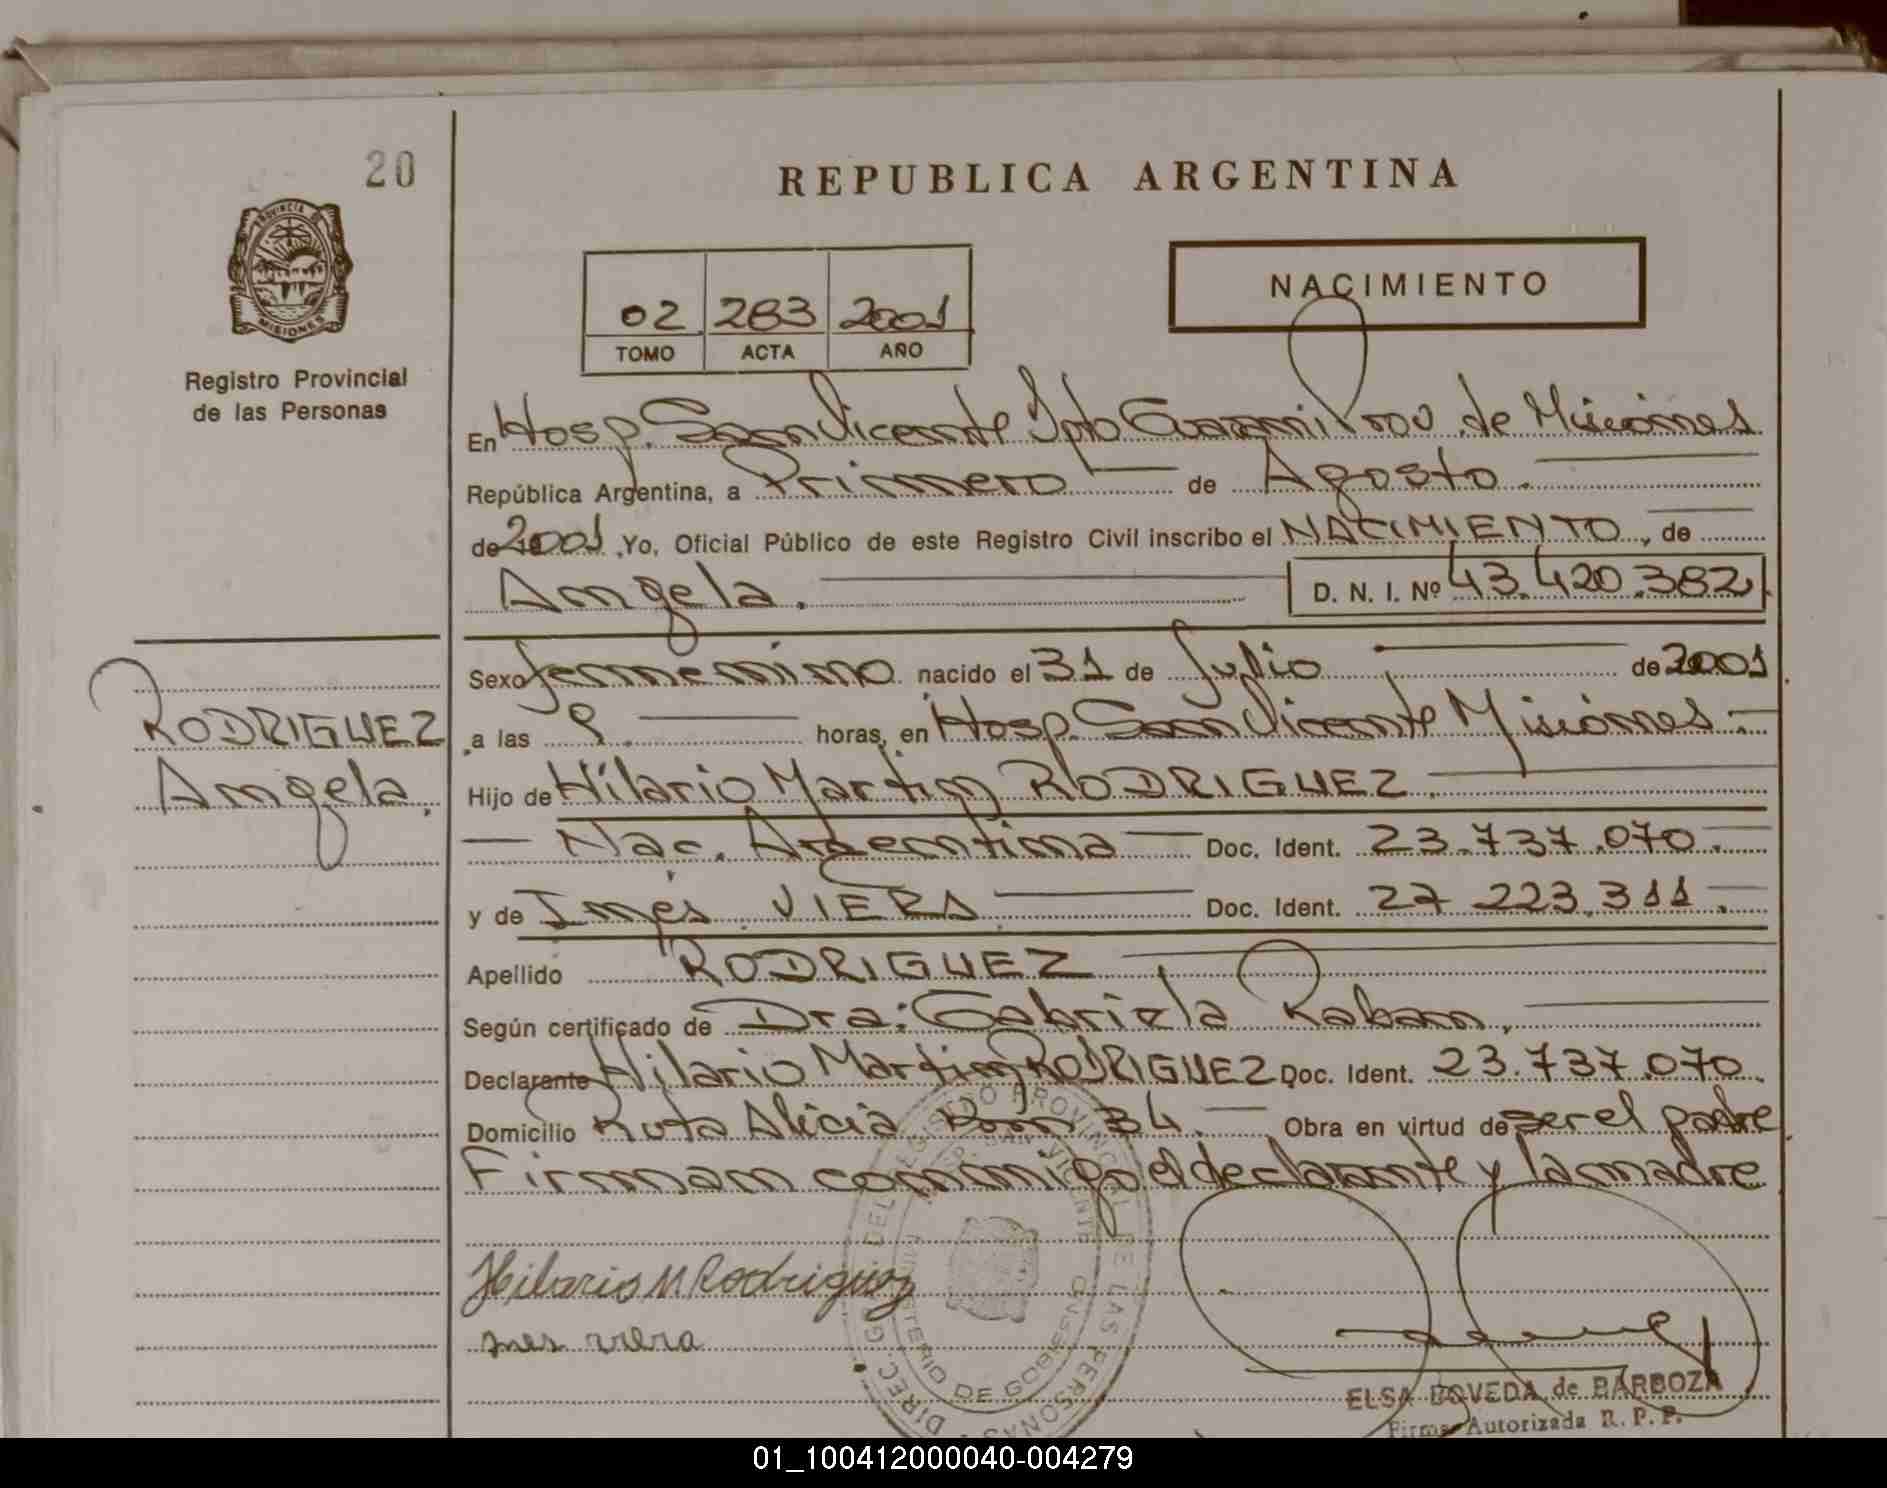 20
REPUBLICA ARGENTINA
PROVINCIA DE
MISIONES
Registro Provincial
de las Personas
02 283 2001
TOMO ACTA AÑO
NACIMIENTO
En Hosp. San Vicente Dpto Guarani Prov. de Misiones
República Argentina, a Primero de Agosto.
de 2001 Yo, Oficial Público de este Registro Civil inscribo el NACIMIENTO, de
Angela. D. N. I. Nº 43.420.382
Sexo femenino nacido el 31 de Julio de 2001
RODRIGUEZ
Angela.
a las 9. horas, en Hosp. San Vicente Misiones.
Hijo de Hilario Martin RODRIGUEZ.
Nac. Argentina Doc. Ident. 23.737.070.
y de Inés VIERA Doc. Ident. 27 223.311.
Apellido RODRIGUEZ
Según certificado de Dra: Gabriela Raban,
Declarante Hilario Martin RODRIGUEZ Doc. Ident. 23.737.070
Domicilio Ruta Alicia Km 34. Obra en virtud de ser el padre
Firman conmigo el declarante y la madre
Hilario M Rodriguez
ines viera
DIREC. GRAL. DEL REGISTRO PROVINCIAL DE LAS PERSONAS
HOSP. SAN VICENTE
MINISTERIO DE GOBIERNO
ELSA BOVEDA de BARBOZA
Firma Autorizada R. P. P.
01_100412000040-004279